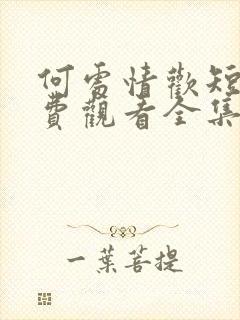 何處情歡短
費觀看全集
一葉菩提